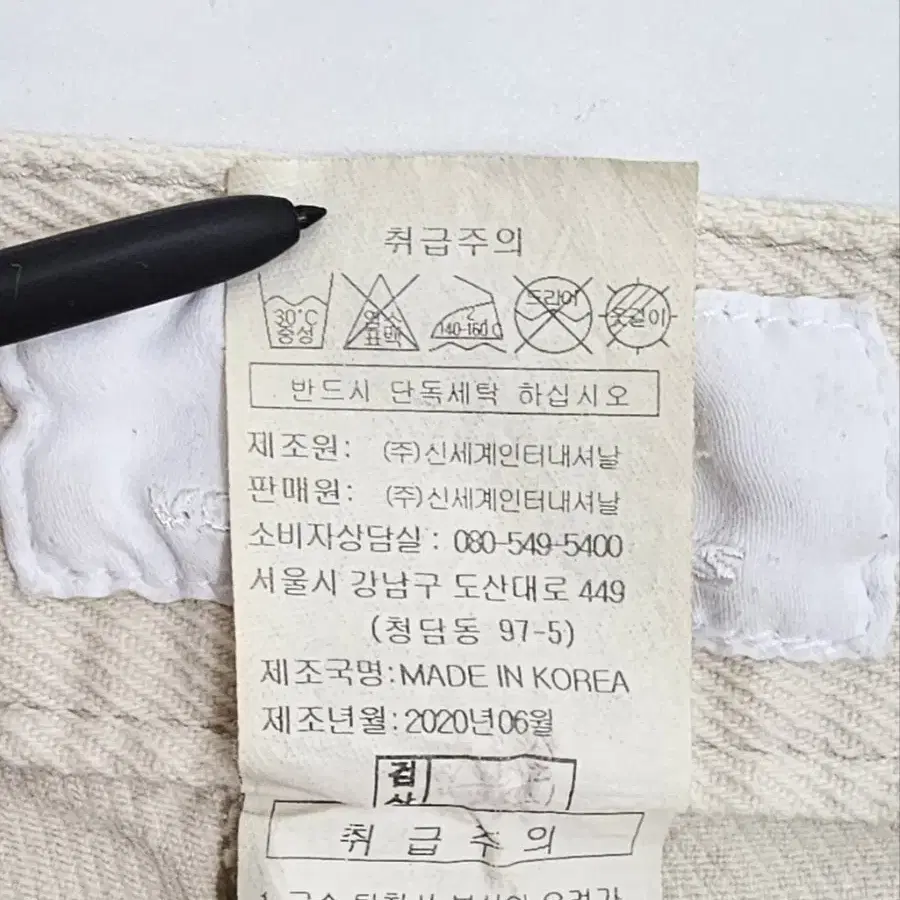 취급주의
30°C 중성 염소 표백 140-160°C 드라이 옷걸이
반드시 단독세탁 하십시오
제조원: (주)신세계인터내셔날
판매원: (주)신세계인터내셔날
소비자상담실 : 080-549-5400
서울시 강남구 도산대로 449
(청담동 97-5)
제조국명:MADE IN KOREA
제조년월:2020년06월
검
취급주의